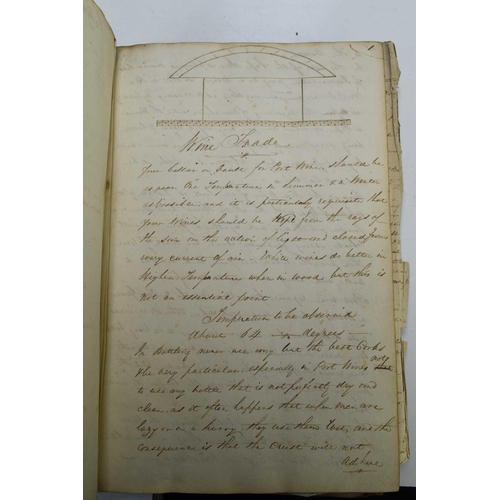 1
Wine Trade
Your Cellar or Vault for Port Wine should be
as near one Temperature in Summer & Winter
as Possible, and it is particularly requisite that
your Wines should be Kept from the rays of
the sun or the action of Light and closed from
every current of air. White wines do better in
Higher Temperature when in wood but this is
not an essential point
Temperature to be observed
about 64 degrees
In Bottling never use any but the best Corks
Be very particular especially in Port Wines not
to use any bottle that is not perfectly dry and
clean, as it often happens that when men are
lazy or in a hurry, they use them last, and the
consequence is that the Crust will not
adhere